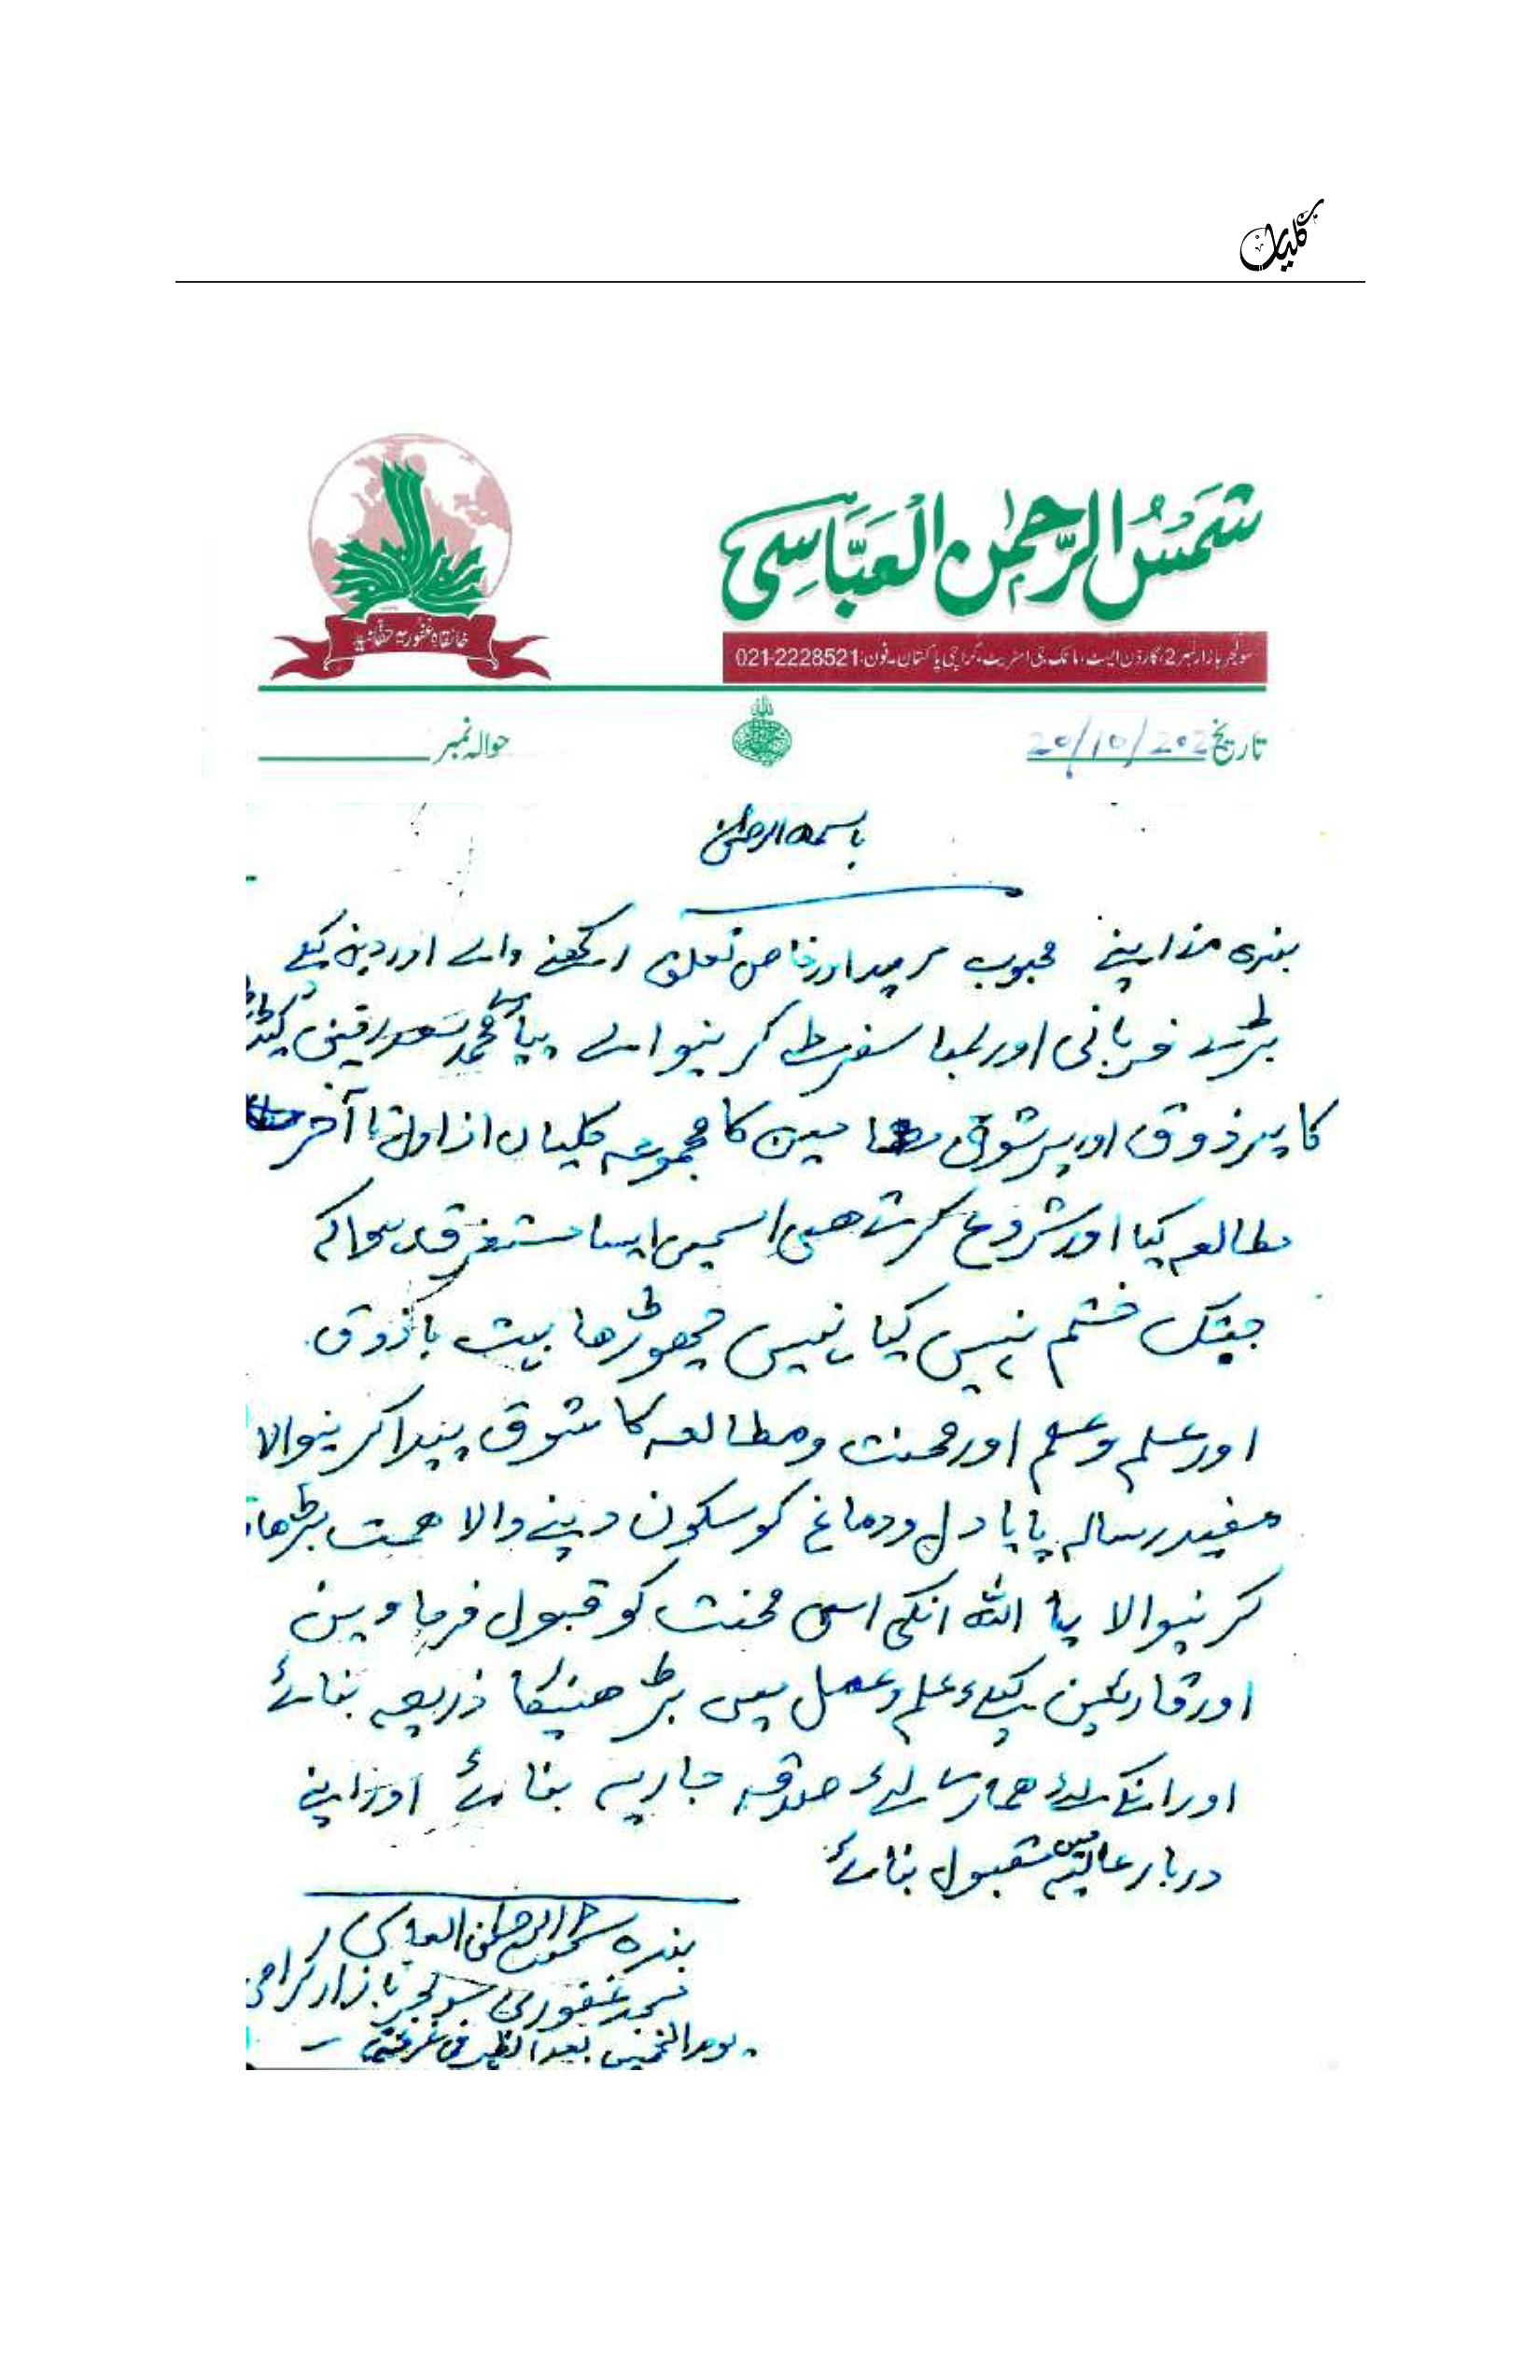 کلیاں
شَمْسُ الرَّحمٰن الْعَبَّاسِی
خانقاہ غفوریہ حقانیہ
سولجر بازار نمبر 2، گارڈن ایسٹ، مانک جی اسٹریٹ، کراچی پاکستان۔ فون: 021-2228521
تاریخ 20/10/202
حوالہ نمبر
باسمہ الرحمٰن
بندہ نے اپنے محبوب مرید اور خاص تعلق رکھنے والے اور دین کیلئے
بڑے قربانی اور لمبا سفر طے کرنیوالے محمد سعد
کا پر ذوق اور پر شوق مضامین کا مجموعہ کلیاں از اول تا آخر
مطالعہ کیا اور شروع کرتے ھی اسمیں ایسا مستغرق ہوا کہ
جبتک ختم نہیں کیا نہیں چھوڑھا بہت باذوق
اور علم و علم اور محنت و مطالعہ کا شوق پیدا کرنیوالا
مفید رسالہ پایا دل ودماغ کو سکون دینے والا ھمت بڑھا
کرنیوالا یا اللہ انکی اس محنت کو قبول فرماویں
اور قارئین کیلئے علم وعمل میں بڑھنیکا ذریعہ بنائے
اور انکے لئے ھمارے لئے صدقہ جاریہ بنائے اور اپنے
دربار عالیہ میں مقبول بنائے
بندہ شمس الرحمٰن العباسی
مسجد غفوری سولجر بازار کراچی
یوم الخمیس بعد الظہر فی غرفتی